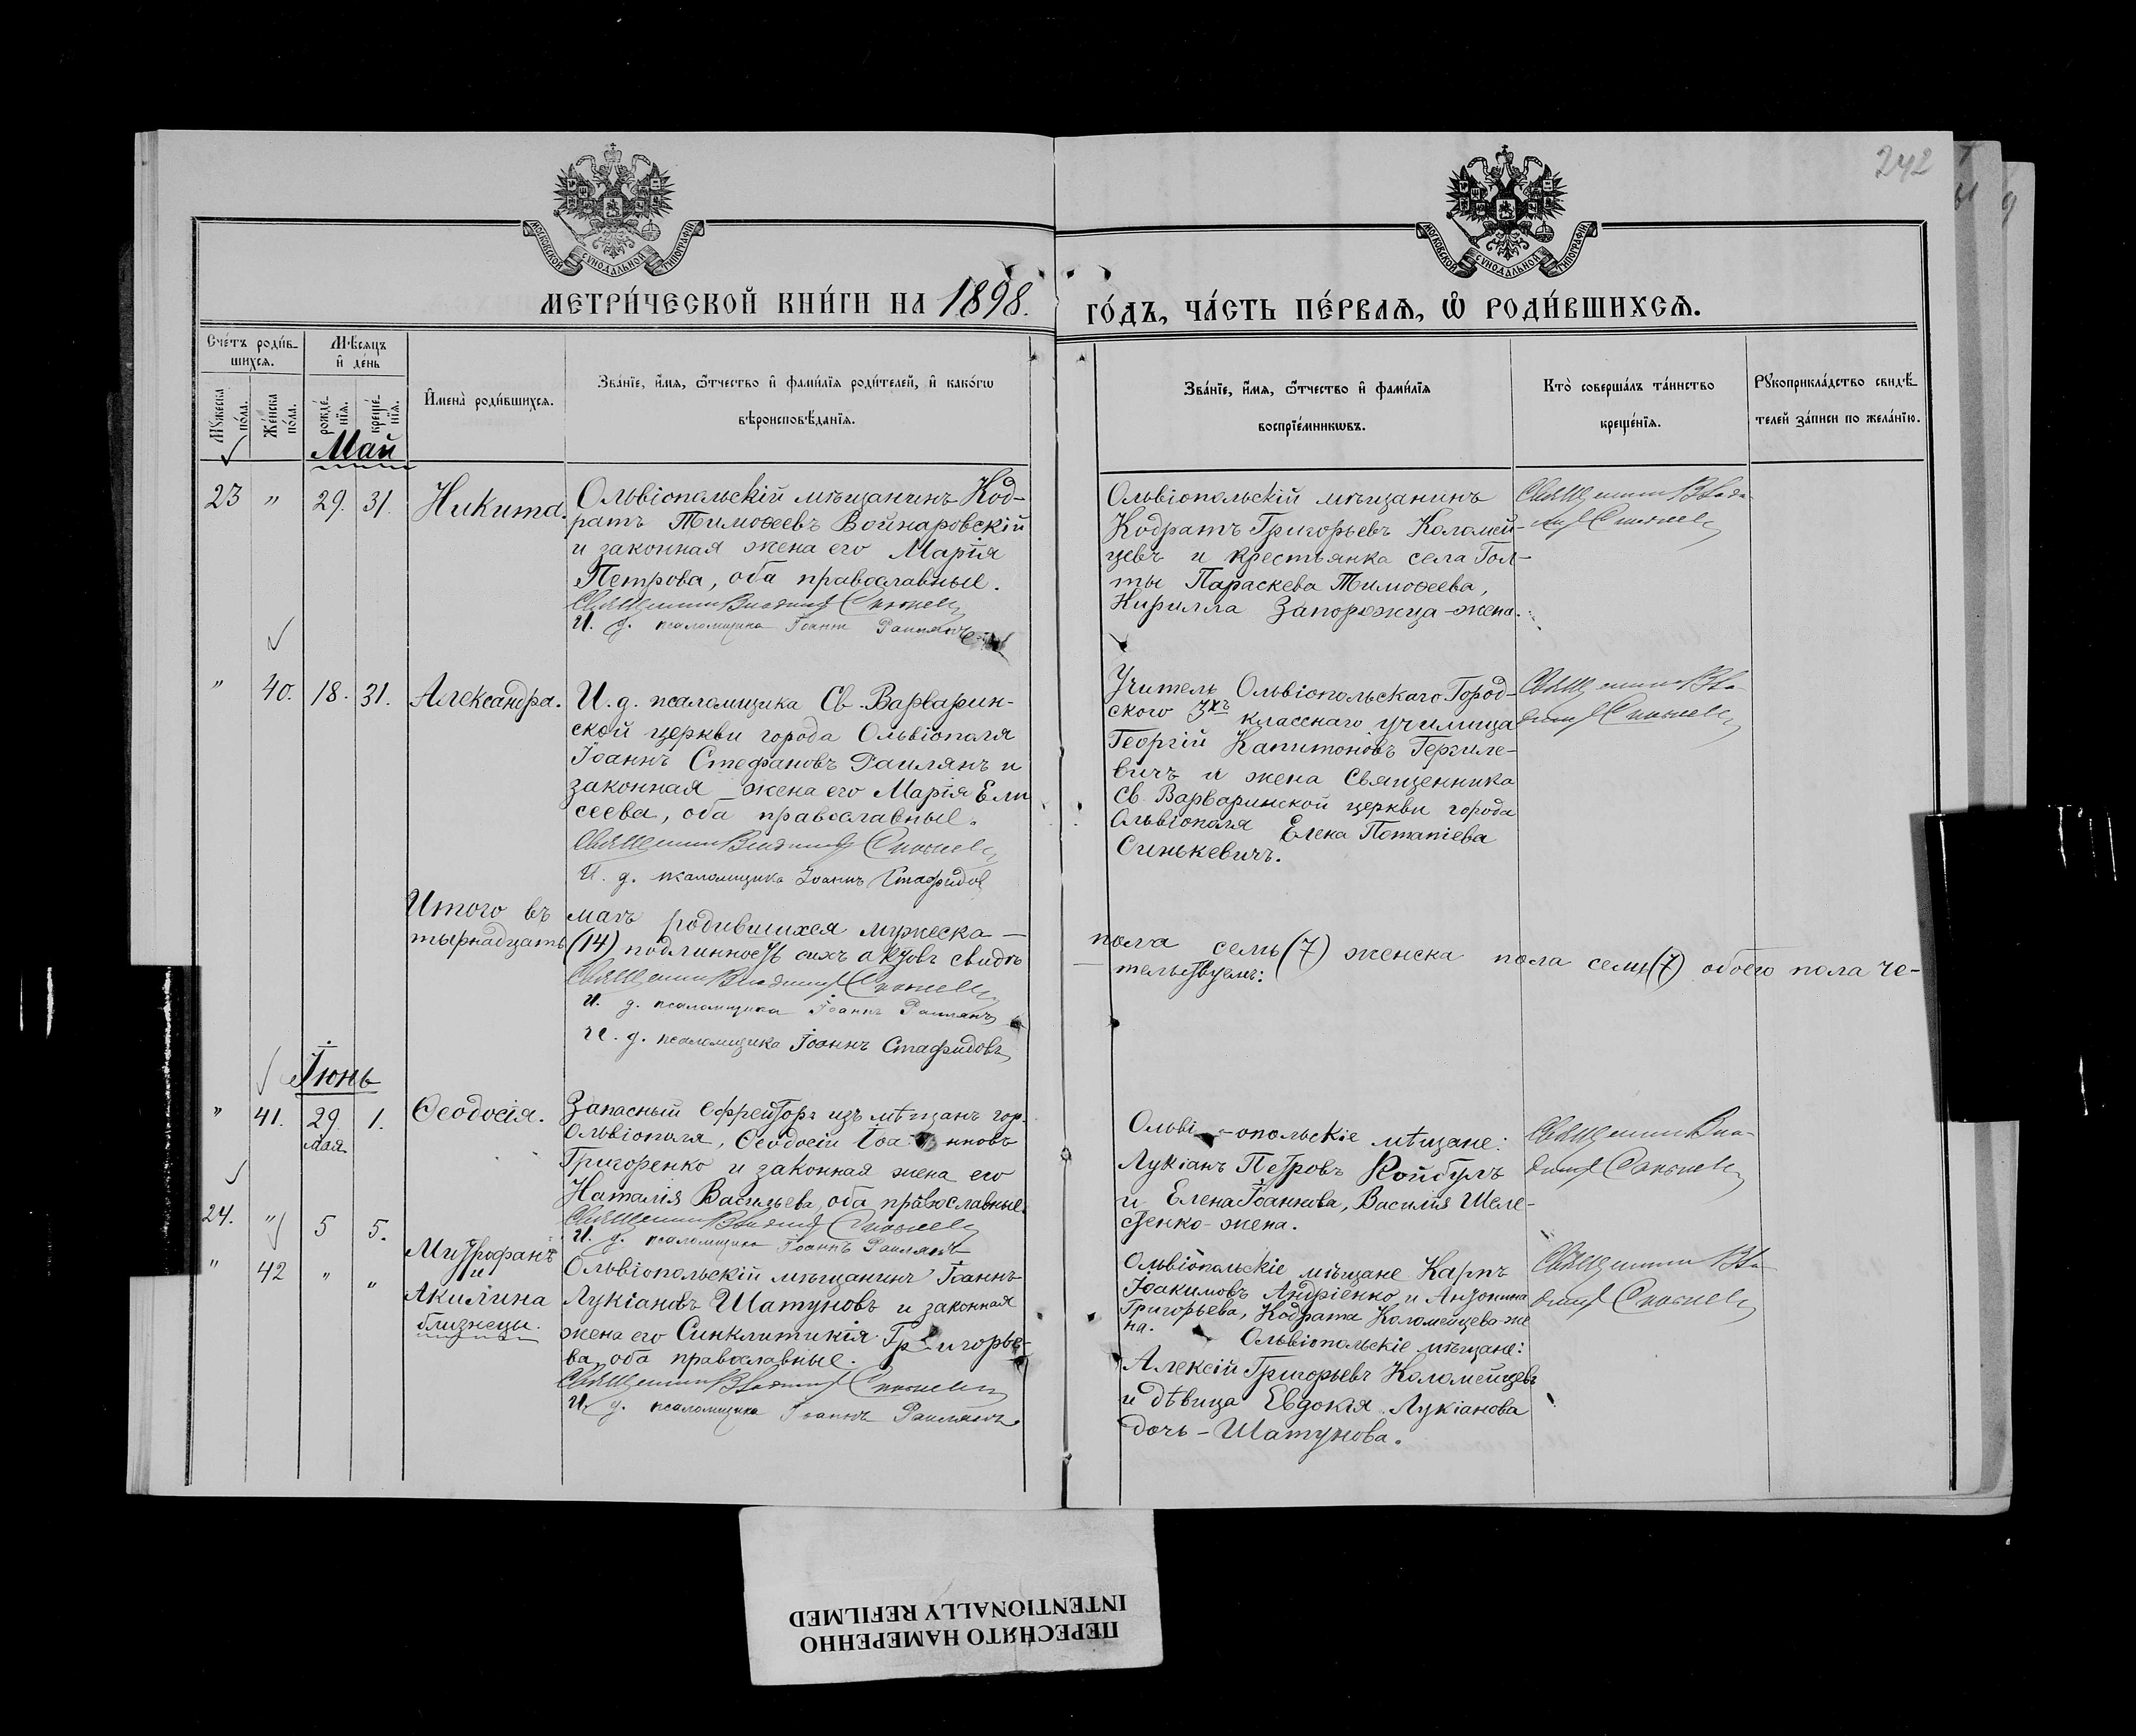 242
МОСКОВСКОЙ СѴНОДАЛЬНОЙ ТИПОГРАФІИ
МОСКОВСКОЙ СѴНОДАЛЬНОЙ ТИПОГРАФІИ
МЕТРИ́ЧЕСКОЙ КНИ́ГИ НА 1898. ГО́ДЪ, ЧА́СТЬ ПЕ́РВАѦ, Ѽ РОДИ́ВШИХСѦ.
Сче́тъ роди́в-
шихся.
Мѣ́сяцъ
и҆ де́нь
Мꙋ́жеска по́ла.
Же́нска по́ла.
рожде́нїя.
креще́нїя.
И҆мена̀ роди́вшихся.
Зва́нїе, и҆́мя, ѻ҆́тчество и҆ фами́лїя роди́телей, и҆ како́гѡ
вѣроисповѣ́данїя.
Зва́нїе, и҆́мя, ѻ҆́тчество и҆ фами́лїя
воспрїе́мникѡвъ.
Кто̀ соверша́лъ та́инство
креще́нїя.
Рꙋкоприкла́дство свидѣ́-
телей за́писи по жела́нїю.
Май
23 " 29. 31. Никита.
Ольвіопольскій мѣщанинъ Код-
ратъ Тимоѳеевъ Войнаровскій
и законная жена его Марія
Петрова, оба православные.
Священникъ Владиміръ
И. д. псаломщика Іоаннъ Раилянъ
Ольвіопольскій мѣщанинъ
Кодратъ Григорьевъ Коломей-
цевъ и крестьянка села Гол-
ты Параскева Тимоѳеева,
Кирилла Запорожца-жена.
Священникъ Влади-
міръ
" 40. 18. 31. Александра.
И. д. псаломщика Св. Варварин-
ской церкви города Ольвіополя
Іоаннъ Стефановъ Раилянъ и
законная жена его Марія Ели
сеева, оба православные.
Священникъ Владиміръ
И. д. псаломщика Іоаннъ Стафидов
Учитель Ольвіопольскаго Город-
ского 3хъ класснаго училища
Георгій Капитоновъ
вичъ и жена Священника
Св. Варваринской церкви города
Ольвіополя Елена Потапіева
Синькевичъ.
Священникъ Вла-
диміръ
Итого въ маѣ родившихся мужеска — пола семь (7) женска пола семь (7) обоего пола че-
тырнадцать (14) подлинность сихъ актовъ свидѣ — тельствуемъ:
Священникъ Владиміръ
И. д. псаломщика Іоаннъ Раилянъ
И. д. псаломщика Іоаннъ Стафидовъ
Іюнь
" 41. 29. мая. 1. Ѳеодосія.
Запасный ефрейторъ изъ мѣщанъ гор.
Ольвіополя, Ѳеодосій Іоанновъ
Григоренко и законная жена его
Наталія Васильева, оба православные.
Священникъ Владиміръ
И. д. псаломщика Іоаннъ Раилянъ
Ольві-опольскіе мѣщане:
Лукіанъ Петровъ Койбулъ
и Елена Іоаннова, Василія Шеле-
стенко-жена.
Священникъ Вла-
диміръ
24. " 5 5. Митрофанъ
и
" 42 " " Акилина
близнецы.
Ольвіопольскій мѣщанинъ Іоаннъ
Лукіановъ Шатуновъ и законная
жена его Синклитикія Григорье-
ва, оба православные.
Священникъ Владиміръ
И. д. псаломщика Іоаннъ Раилянъ.
Ольвіопольскіе мѣщане Карпъ
Іоакимовъ Андріенко и Антонина
Григорьева, Кодрата Коломейцева же
на.
Ольвіопольскіе мѣщане:
Алексій Григорьевъ Коломейцевъ
и дѣвица Евдокія Лукіанова
дочь-Шатунова.
Священникъ Вла-
диміръ
ПЕРЕСНЯТО НАМЕРЕННО
INTENTIONALLY REFILMED